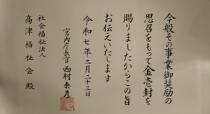 今般その事業御奨励の
思召をもって金壱封を
賜りましたからこの旨
お伝えいたします
令和七年二月二十三日
宮内庁長官 西村泰彦
社会福祉法人
高津福祉会 殿